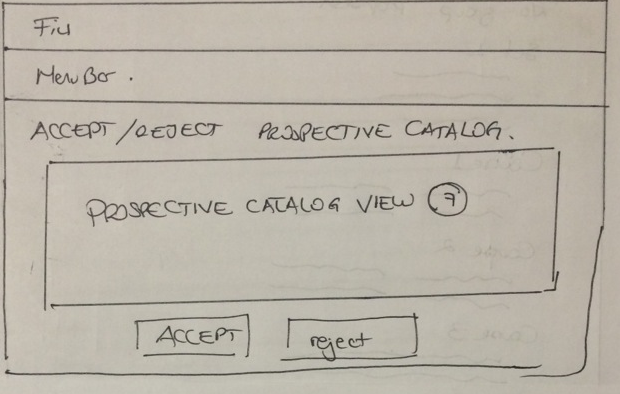 Fill
Menu Bar.
ACCEPT/REJECT PROSPECTIVE CATALOG.
PROSPECTIVE CATALOG VIEW 7
ACCEPT reject